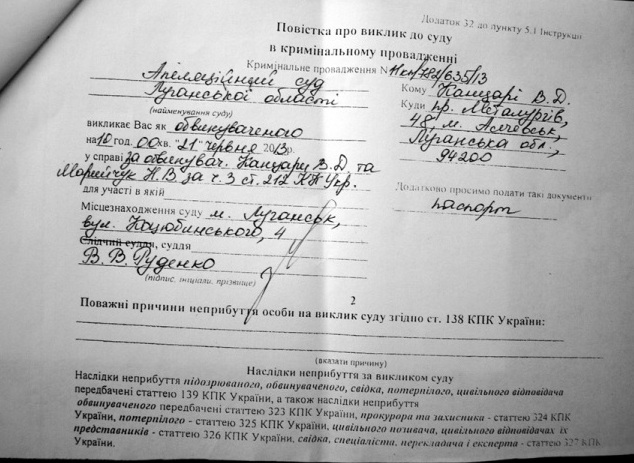 Додаток 32 до пункту 5.1 Інструкції
Повістка про виклик до суду
в кримінальному провадженні
Кримінальне провадження № 11кп/782/635/13
Апеляційний суд
Луганської області
(найменування суду)
викликає Вас як обвинуваченого
на 10 год. 00 хв. "21" червня 2013р.
у справі за обвинувач. Канцарі В.Д. та
Марийчук Н.В. за ч. 3 ст. 212 КК Укр.
для участі в якій
Місцезнаходження суду м. Луганськ,
вул. Коцюбинського, 4
Слідчий суддя, суддя
В. В. Руденко
(підпис, ініціали, прізвище)
Кому Канцарі В.Д.
Куди пр. Металургів,
48, м. Алчевськ,
Луганська обл.,
94200
Додатково просимо подати такі документи
паспорт
2
Поважні причини неприбуття особи на виклик суду згідно ст. 138 КПК України:
(вказати причину)
Наслідки неприбуття за викликом суду
Наслідки неприбуття підозрюваного, обвинуваченого, свідка, потерпілого, цивільного відповідача
передбачені статтею 139 КПК України, а також наслідки неприбуття
обвинуваченого передбачені статтею 323 КПК України, прокурора та захисника - статтею 324 КПК
України, потерпілого - статтею 325 КПК України, цивільного позивача, цивільного відповідача їх
представників - статтею 326 КПК України, свідка, спеціаліста, перекладача і експерта - статтею 327 КПК
України.